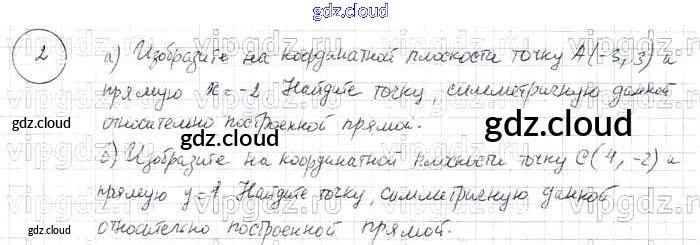 gdz.cloud
2
а) Изобразите на координатной плоскости точку A(-5, 3) и
прямую x = -2. Найдите точку, симметричную данной
относительно построенной прямой.
б) Изобразите на координатной плоскости точку C(4, -2) и
прямую y = 1. Найдите точку, симметричную данной
относительно построенной прямой.
gdz.cloud
gdz.cloud
gdz.cloud
gdz.cloud
gdz.cloud
vipgdz.ru